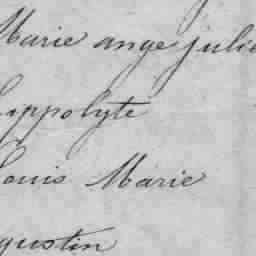 Marie ange julie
hippolyte
Louis Marie
gustin